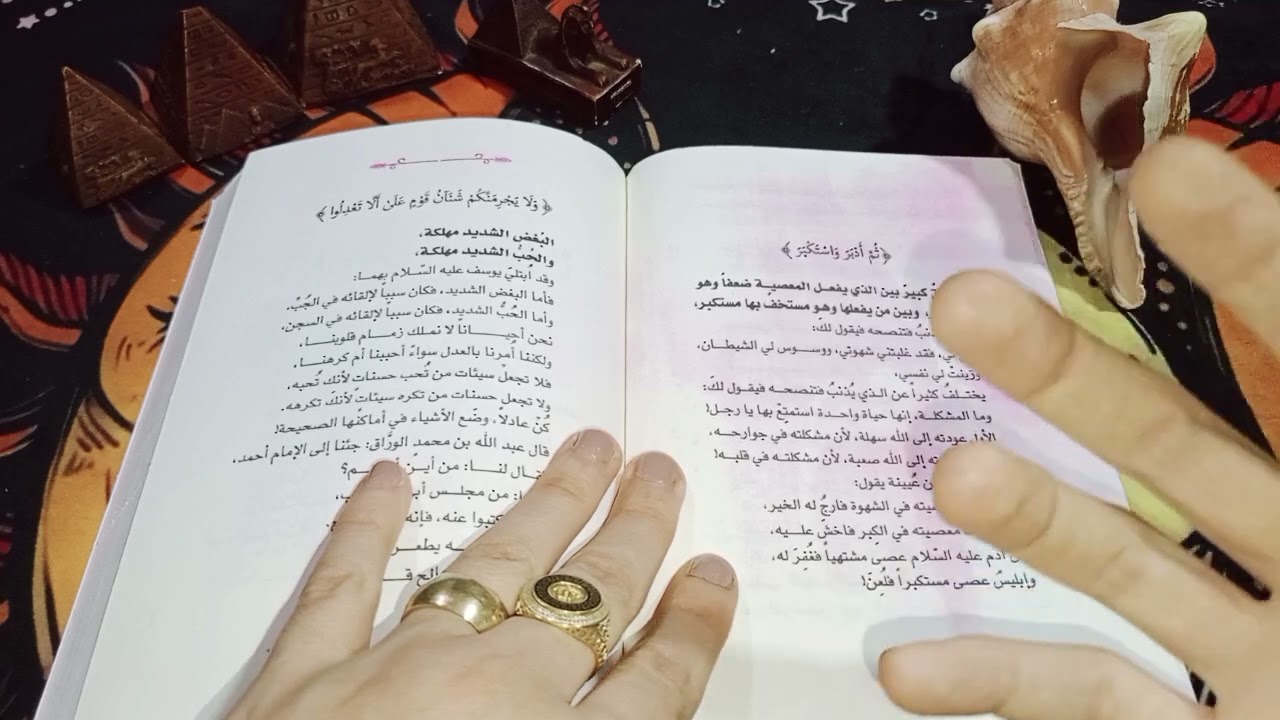 ﴿ ثُمَّ أَدْبَرَ وَاسْتَكْبَرَ ﴾
كبيرٌ بين الذي يفعل المعصية ضعفاً وهو
وبين من يفعلها وهو مستخف بها مستكبر،
فتنصحه فيقول لك:
فقد غلبتني شهوتي، ووسوس لي الشيطان،
وزينتْ لي نفسي،
يختلفُ كثيراً عن الذي يُذنبُ فتنصحه فيقول لكَ:
وما المشكلة، إنها حياة واحدة استمتِعْ بها يا رجل!
الأول عودته إلى الله سهلة، لأن مشكلته في جوارحه،
إلى الله صعبة، لأن مشكلته في قلبه!
عُيينة يقول:
في الشهوة فارجُ له الخير،
معصيته في الكِبر فاخشَ عليه،
آدم عليه السّلام عصى مشتهياً فغُفِرَ له،
وإبليسُ عصى مستكبراً فلُعِنَ!
﴿ وَلَا يَجْرِمَنَّكُمْ شَنَآنُ قَوْمٍ عَلَىٰ أَلَّا تَعْدِلُوا ﴾
البُغض الشديد مهلكة،
والحُبُّ الشديد مهلكة،
وقد ابتليَ يوسف عليه السّلام بهما:
فأما البغض الشديد، فكان سبباً لإلقائه في الجُبّ،
وأما الحُبُّ الشديد، فكان سبباً لإلقائه في السجن.
نحن أحياناً لا نملك زمام قلوبنا،
ولكننا أُمرنا بالعدل سواءً أحببنا أم كرهنا.
فلا تجعلْ سيئات من تُحب حسنات لأنكَ تُحبه،
ولا تجعل حسنات من تكره سيئات لأنكَ تكرهه.
كُنْ عادلاً، وضَعِ الأشياء في أماكنها الصحيحة!
قال عبد الله بن محمد الورَّاق: جئنا إلى الإمام أحمد،
لنا: من أين
من مجلس
عنه، فإنه
يطعن